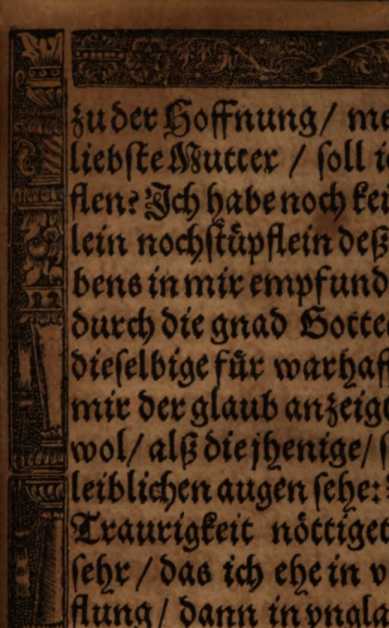 zu der Hoffnung / me
liebſte Mutter / ſoll i
ſten? Jch habe noch kei
lein noch ſtüpflein deß
bens in mir empfund
durch die gnad Gotte
dieſelbige für warhaf
mir der glaub anzeigt
wol / alß die jhenige / ſ
leiblichen augen ſehe:
Traurigkeit nöttiget
ſehr / das ich ehe in v
flung / dann in vngla